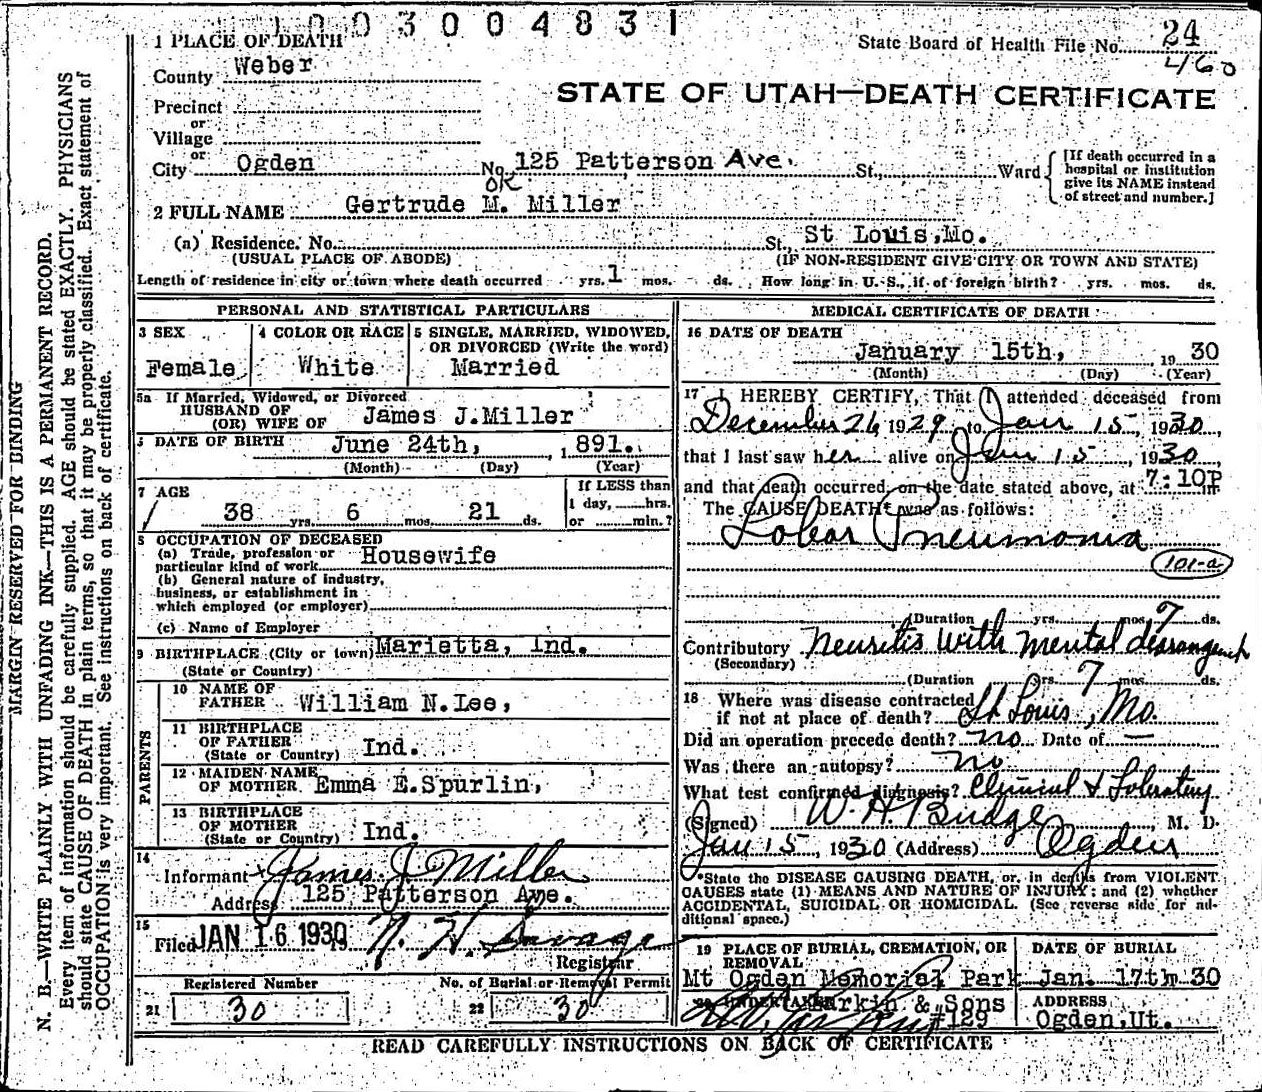 1003004831
1 PLACE OF DEATH
State Board of Health File No. 24
460
County Weber
STATE OF UTAH—DEATH CERTIFICATE
Precinct
or
Village
or
City Ogden No. 125 Patterson Ave. St., Ward
OK
[If death occurred in a
hospital or institution
give its NAME instead
of street and number.]
2 FULL NAME Gertrude M. Miller
(a) Residence. No. St., St Louis, Mo.
(USUAL PLACE OF ABODE) (IF NON-RESIDENT GIVE CITY OR TOWN AND STATE)
Length of residence in city or town where death occurred yrs. 1 mos. ds. How long in U. S., if of foreign birth? yrs. mos. ds.
PERSONAL AND STATISTICAL PARTICULARS
3 SEX
Female
4 COLOR OR RACE
White
5 SINGLE, MARRIED, WIDOWED,
OR DIVORCED (Write the word)
Married
5a If Married, Widowed, or Divorced
HUSBAND OF
(OR) WIFE OF James J.Miller
DATE OF BIRTH June 24th, 1891.
(Month) (Day) (Year)
7 AGE
38 yrs. 6 mos. 21 ds.
If LESS than
1 day, hrs.
or min.?
8 OCCUPATION OF DECEASED
(a) Trade, profession or
particular kind of work Housewife
(b) General nature of industry,
business, or establishment in
which employed (or employer)
(c) Name of Employer
9 BIRTHPLACE (City or town) Marietta, Ind.
(State or Country)
PARENTS
10 NAME OF
FATHER William N.Lee,
11 BIRTHPLACE
OF FATHER
(State or Country) Ind.
12 MAIDEN NAME
OF MOTHER Emma E.Spurlin,
13 BIRTHPLACE
OF MOTHER
(State or Country) Ind.
14
Informant James J Miller
Address 125 Patterson Ave.
15
Filed JAN 16 1930 N. H. Savage
Registrar
Registered Number
21 30
No. of Burial or Removal Permit
22 30
MEDICAL CERTIFICATE OF DEATH
16 DATE OF DEATH
January 15th, 1930
(Month) (Day) (Year)
17 I HEREBY CERTIFY, That I attended deceased from
December 26, 1929, to Jan 15, 1930,
that I last saw her alive on Jan 15, 1930,
and that death occurred, on the date stated above, at 7:10P m
The CAUSE DEATH* was as follows:
Lobar Pneumonia
101-a
(Duration yrs. mos. 7 ds.
Contributory Neuritis with mental derangement
(Secondary)
(Duration yrs. 7 mos. ds.
18 Where was disease contracted
if not at place of death? St. Louis, Mo.
Did an operation precede death? no Date of —
Was there an autopsy? no
What test confirmed diagnosis? Clinical &
(Signed) W. H. Budge, M. D.
Jan 15, 1930 (Address) Ogden
*State the DISEASE CAUSING DEATH, or, in deaths from VIOLENT
CAUSES state (1) MEANS AND NATURE OF INJURY; and (2) whether
ACCIDENTAL, SUICIDAL OR HOMICIDAL. (See reverse side for ad-
ditional space.)
19 PLACE OF BURIAL, CREMATION, OR
REMOVAL
Mt Ogden Memorial Park
DATE OF BURIAL
Jan. 17th 30
20 UNDERTAKER Larkin & Sons
#129
ADDRESS
Ogden,Ut.
READ CAREFULLY INSTRUCTIONS ON BACK OF CERTIFICATE
MARGIN RESERVED FOR BINDING
N. B.—WRITE PLAINLY WITH UNFADING INK—THIS IS A PERMANENT RECORD.
Every item of information should be carefully supplied. AGE should be stated EXACTLY. PHYSICIANS
should state CAUSE OF DEATH in plain terms, so that it may be properly classified. Exact statement of
OCCUPATION is very important. See instructions on back of certificate.